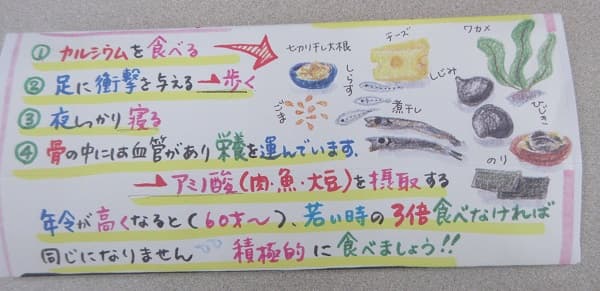 ① カルシウムを食べる
② 足に衝撃を与える→歩く
③ 夜しっかり寝る
④ 骨の中には血管があり栄養を運んでいます.
→アミノ酸(肉・魚・大豆)を摂取する
年令が高くなると(60才〜)、若い時の3倍食べなければ
同じになりません 積極的に食べましょう!!
切り干し大根
チーズ
ワカメ
しらす
しじみ
ごま
煮干し
ひじき
のり